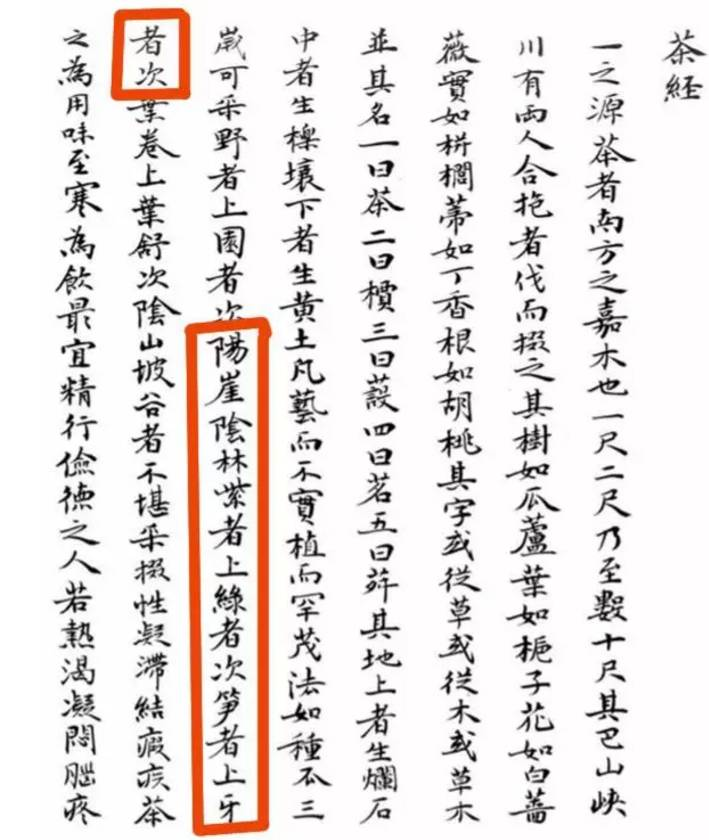 茶経
一之源茶者南方之嘉木也一尺二尺乃至數十尺其巴山峽
川有兩人合抱者伐而掇之其樹如瓜蘆葉如梔子花如白薔
薇實如栟櫚蒂如丁香根如胡桃其字或從草或從木或草木
並其名一曰茶二曰檟三曰蔎四曰茗五曰荈其地上者生爛石
中者生櫟壤下者生黄土凡藝而不實植而罕茂法如種瓜三
歲可采野者上園者次陽崖陰林紫者上綠者次笋者上牙
者次葉卷上葉舒次陰山坡谷者不堪采掇性凝滯結瘕疾茶
之為用味至寒為飲最宜精行儉德之人若熱渴凝悶腦疼